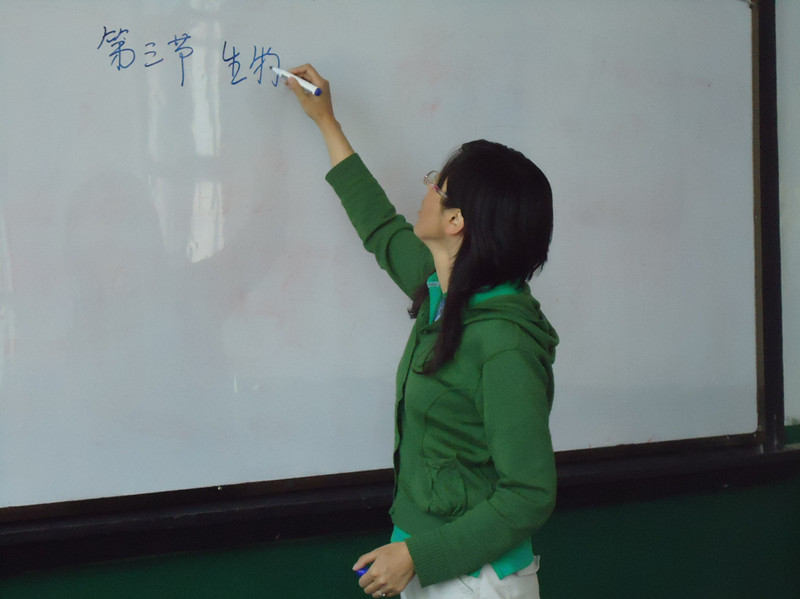 第三节 生物